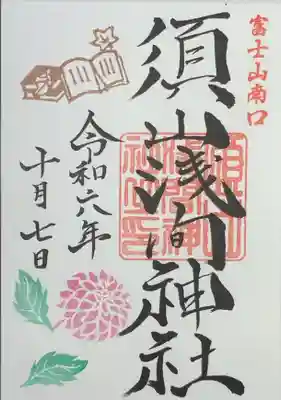 富士山南口
須山浅间神社
令和六年
十月七日